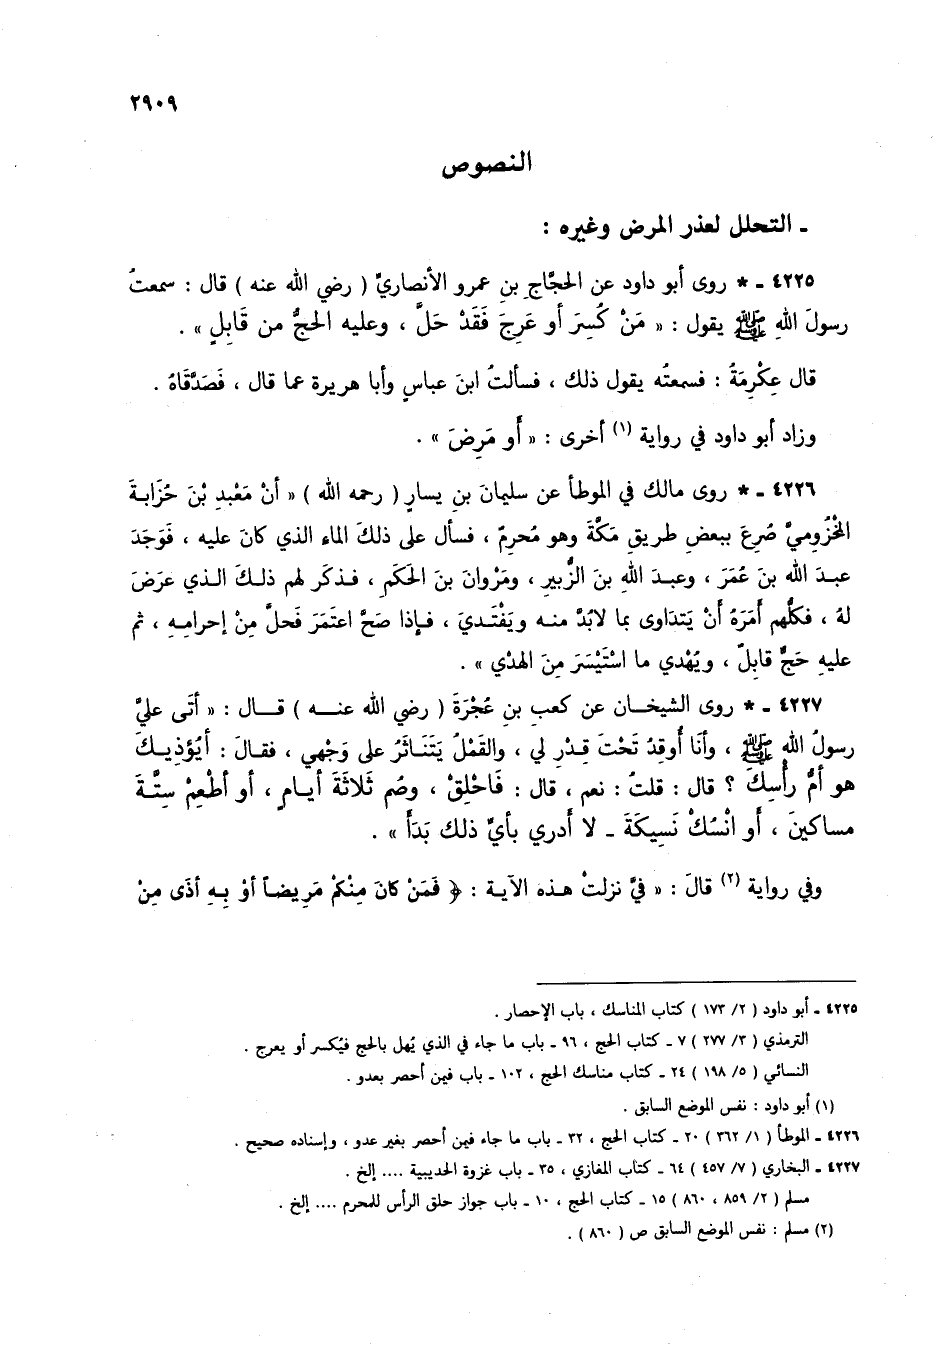 ٢٩٠٩
النصوص
ـ التحلل لعذر المرض وغيره :
٤٢٢٥ ـ * روى أبو داود عن الحجَّاجِ بنِ عمرو الأنصاريِّ ( رضي الله عنه ) قال : سمعتُ
رسولَ اللهِ ﷺ يقول : « مَنْ كُسِرَ أو عَرِجَ فَقَدْ حَلَّ ، وعليه الحجُّ من قَابِلٍ » .
قال عِكْرِمَةُ : فسمعتُه يقول ذلك ، فسألتُ ابنَ عباسٍ وأبا هريرة عما قال ، فَصَدَّقَاهُ .
وزاد أبو داود في رواية (١) أخرى : « أَو مَرِضَ » .
٤٢٢٦ ـ * روى مالك في الموطأ عن سليمانَ بنِ يسارٍ ( رحمه الله ) « أنْ مَعْبدِ بْنَ حُزَابـةَ
المخْزُوميَّ صُرِعَ ببعضِ طريقِ مَكَّةَ وهو مُحرِمٌ ، فسأل على ذلكَ الماء الذي كانَ عليه ، فَوَجَدَ
عبـدَ الله بنَ عُمَرَ ، وعبـدَ اللهِ بنَ الزُّبيرِ ، ومَرْوانَ بنَ الحَكَمِ ، فـذكَر لهم ذلـكَ الـذي عرَضَ
لهُ ، فكلُّهم أمَرَهُ أنْ يَتَدَاوى بما لابُدَّ منـه ويَفْتَـديَ ، فـإذا صَحَّ اعتَمَرَ فَحلَّ مِنْ إحرامِـهِ ، ثم
عليهِ حَجُّ قابِلٍ ، ويُهْدي ما اسْتَيْسَرَ مِنَ الهدْي » .
٤٢٢٧ ـ * روى الشيخــان عن كعبِ بنِ عُجْرَةَ ( رضي الله عنـــه ) قـــال : « أتَى عليَّ
رسولُ اللهِ ﷺ ، وأنَا أُوقِدُ تَحْتَ قِـدْرٍ لي ، والقَمْلُ يَتَنَاثَرُ على وَجْهي ، فقـالَ : أيُؤذِيـكَ
هو أمُّ رأسِكَ ؟ قال : قلتُ : نعم ، قال : فَاحْلِقْ ، وصُم ثَلاثَةَ أيـامٍ ، أو أطْعِمْ ستَّـةَ
مساكينَ ، أو انْسُكْ نَسِيكَةً ـ لا أدري بأيِّ ذلك بَدَأ » .
وفي رواية (٢) قالَ : « فيَّ نزلتْ هـذه الآيـة : ﴿ فَمَنْ كانَ مِنْكمْ مَريضـاً أوْ بِـهِ أذًى مِنْ
٤٢٢٥ ـ أبو داود ( ٢/ ١٧٣ ) كتاب المناسك ، باب الإحصار .
الترمذي ( ٣/ ٢٧٧ ) ٧ ـ كتاب الحج ، ٩٦ ـ باب ما جاء في الذي يُهل بالحج فيُكسر أو يعرج .
النسائي ( ٥/ ١٩٨ ) ٢٤ ـ كتاب مناسك الحج ، ١٠٢ ـ باب فيمن أحصر بعدو .
(١) أبو داود : نفس الموضع السابق .
٤٢٢٦ ـ الموطأ ( ١/ ٣٦٢ ) ٢٠ ـ كتاب الحج ، ٣٢ ـ باب ما جاء فيمن أحصر بغير عدو ، وإسناده صحيح .
٤٢٢٧ ـ البخاري ( ٧/ ٤٥٧ ) ٦٤ ـ كتاب المغازي ، ٣٥ ـ باب غزوة الحديبية .... إلخ .
مسلم ( ٢/ ٨٥٩ ، ٨٦٠ ) ١٥ ـ كتاب الحج ، ١٠ ـ باب جواز حلق الرأس للمحرم .... إلخ .
(٢) مسلم : نفس الموضع السابق ص ( ٨٦٠ ) .